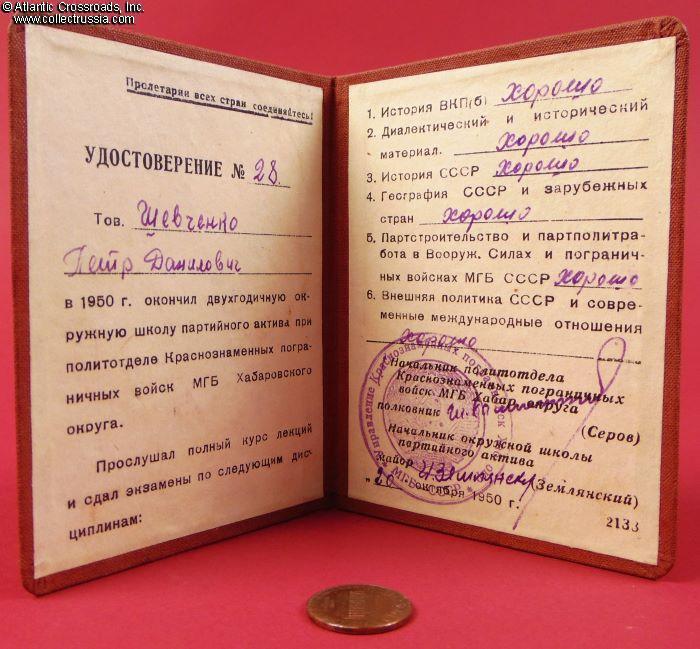 © Atlantic Crossroads, Inc.
© www.collectrussia.com
Пролетарии всех стран соединяйтесь!
УДОСТОВЕРЕНИЕ № 28
Тов. Шевченко
Петр Данилович
в 1950 г. окончил двухгодичную ок-
ружную школу партийного актива при
политотделе Краснознаменных погра-
ничных войск МГБ Хабаровского
округа.
Прослушал полный курс лекций
и сдал экзамены по следующим дис-
циплинам:
1. История ВКП(б) хорошо
2. Диалектический и исторический
материал. хорошо
3. История СССР хорошо
4. География СССР и зарубежных
стран хорошо
5. Партстроительство и партполитра-
бота в Вооруж. Силах и погранич-
ных войсках МГБ СССР хорошо
6. Внешняя политика СССР и совре-
менные международные отношения
хорошо
Начальник политотдела
Краснознаменных пограничных
войск МГБ Хабар. округа
полковник
(Серов)
Начальник окружной школы
партийного актива
майор (Землянский)
"20" октября 1950 г.
2133
Управление Краснознаменных
МГБ